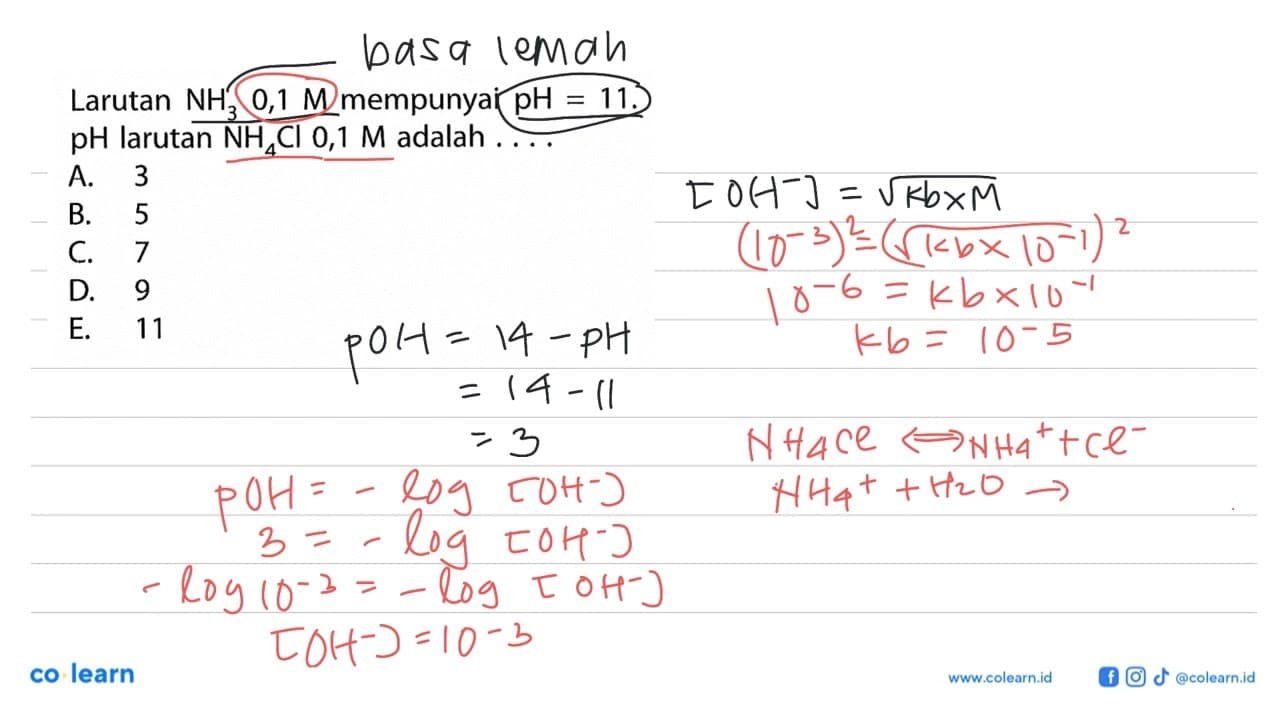 basa lemah
Larutan NH₃ 0,1 M mempunyai pH = 11.
pH larutan NH₄Cl 0,1 M adalah . . . .
A. 3
B. 5
C. 7
D. 9
E. 11
pOH = 14 - pH
= 14 - 11
= 3
pOH = - log [OH⁻]
3 = - log [OH⁻]
- log 10⁻³ = - log [OH⁻]
[OH⁻] = 10⁻³
[OH⁻] = √Kb×M
(10⁻³)² = (√Kb×10⁻¹)²
10⁻⁶ = Kb×10⁻¹
Kb = 10⁻⁵
NH₄Cl ⟺ NH₄⁺ + Cl⁻
NH₄⁺ + H₂O →
co·learn
www.colearn.id
@colearn.id